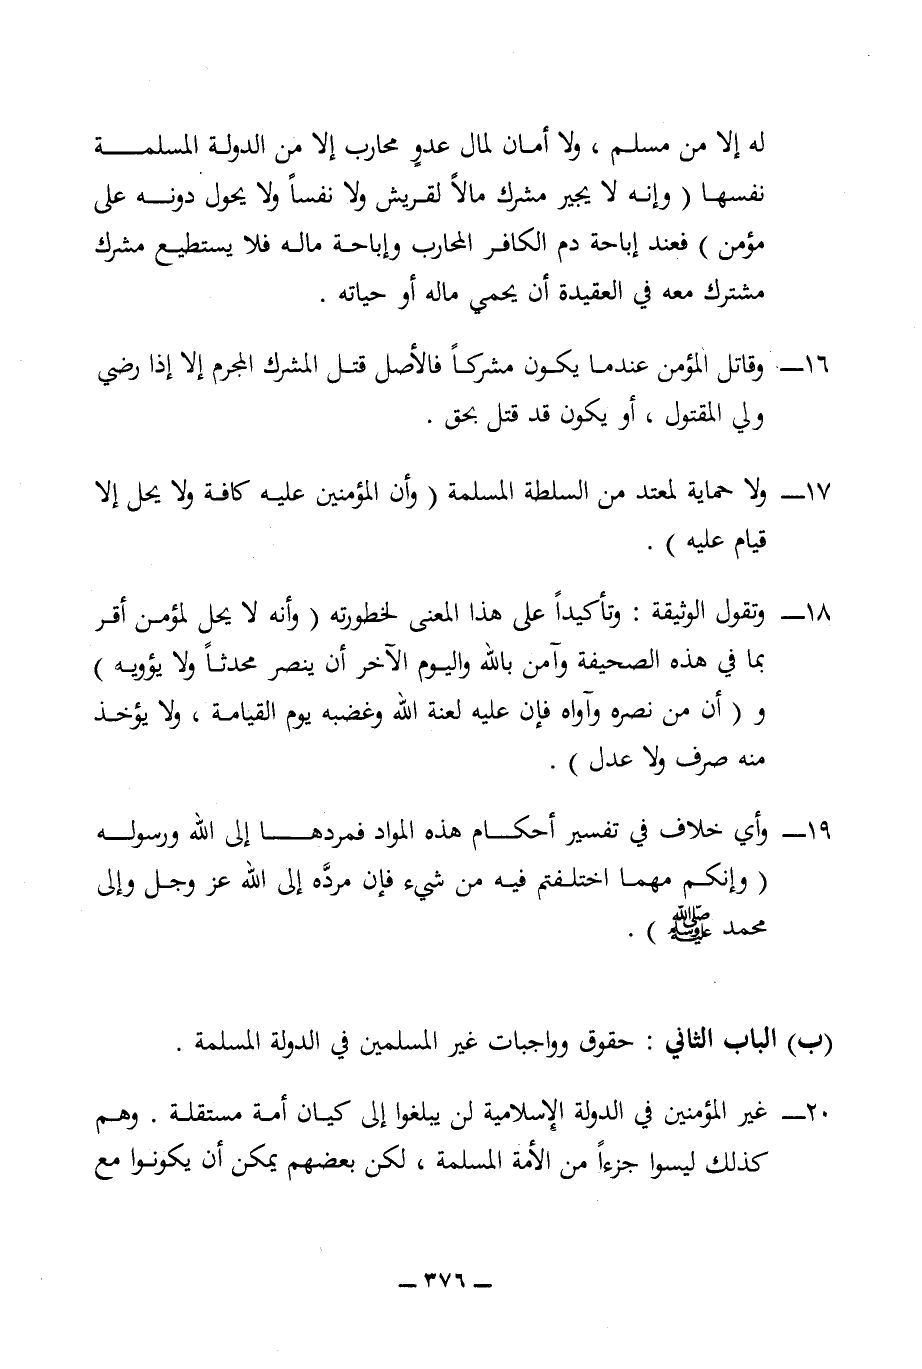 له إلا من مسلم ، ولا أمان لمال عدوٍ محارب إلا من الدولة المسلمة
نفسها ( وإنه لا يجير مشرك مالاً لقريش ولا نفساً ولا يحول دونه على
مؤمن ) فعند إباحة دم الكافر المحارب وإباحة ماله فلا يستطيع مشرك
مشترك معه في العقيدة أن يحمي ماله أو حياته .
١٦ــ وقاتل المؤمن عندما يكون مشركاً فالأصل قتل المشرك المجرم إلا إذا رضي
ولي المقتول ، أو يكون قد قتل بحق .
١٧ــ ولا حماية لمعتد من السلطة المسلمة ( وأن المؤمنين عليه كافة ولا يحل إلا
قيام عليه ) .
١٨ــ وتقول الوثيقة : وتأكيداً على هذا المعنى لخطورته ( وأنه لا يحل لمؤمن أقر
بما في هذه الصحيفة وآمن بالله واليوم الآخر أن ينصر محدثاً ولا يؤويه )
و ( أن من نصره وآواه فإن عليه لعنة الله وغضبه يوم القيامة ، ولا يؤخذ
منه صرف ولا عدل ) .
١٩ــ وأي خلاف في تفسير أحكام هذه المواد فمردها إلى الله ورسوله
( وإنكم مهما اختلفتم فيه من شيء فإن مردَّه إلى الله عز وجل وإلى
محمد ﷺ ) .
(ب) الباب الثاني : حقوق وواجبات غير المسلمين في الدولة المسلمة .
٢٠ــ غير المؤمنين في الدولة الإسلامية لن يبلغوا إلى كيان أمة مستقلة . وهم
كذلك ليسوا جزءاً من الأمة المسلمة ، لكن بعضهم يمكن أن يكونوا مع
ــ ٣٧٦ ــ